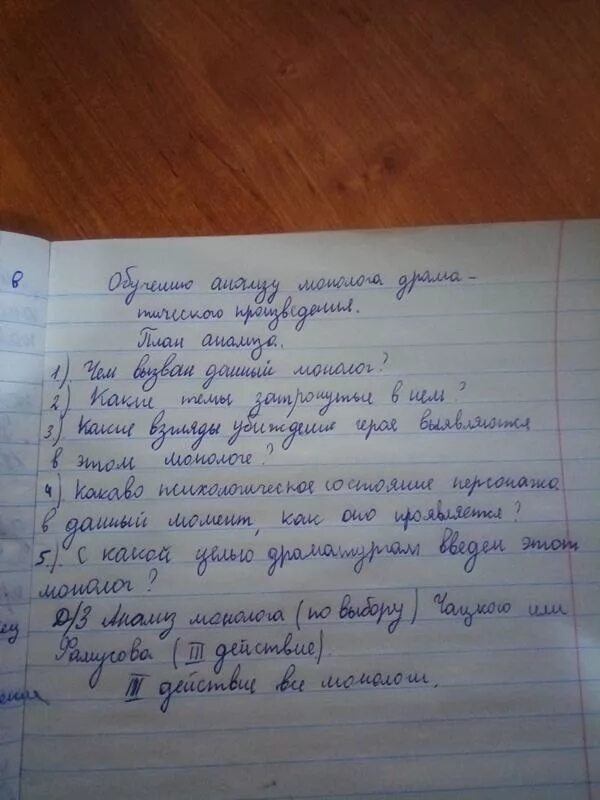 в
Обучению анализу монолога драма-
тического произведения.
План анализа.
1). Чем вызван данный монолог?
2) Какие темы затронутые в нем?
3.) Какие взгляды убеждения героя выявляются
в этом монологе?
4) Каково психологическое состояние персонажа
в данный момент, как оно проявляется?
5.). С какой целью драматургом введен этот
монолог?
Д/З Анализ монолога (по выбору) Чацкого или
Фамусова (III действие).
III действие все монологи.